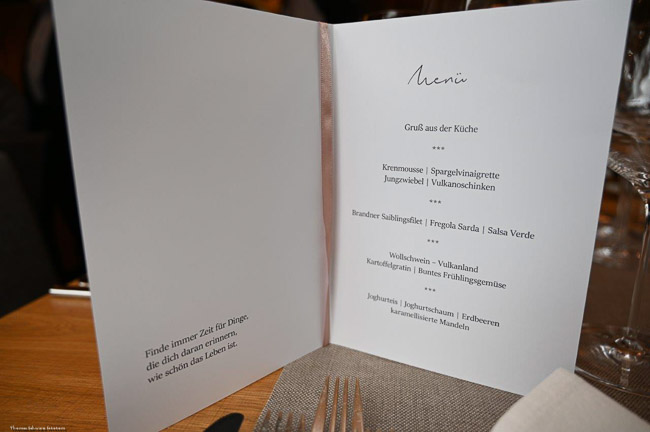 Finde immer Zeit für Dinge,
die dich daran erinnern,
wie schön das Leben ist.
Menü
Gruß aus der Küche
***
Krenmousse | Spargelvinaigrette
Jungzwiebel | Vulkanoschinken
***
Brandner Saiblingsfilet | Fregola Sarda | Salsa Verde
***
Wollschwein – Vulkanland
Kartoffelgratin | Buntes Frühlingsgemüse
***
Joghurteis | Joghurtschaum | Erdbeeren
karamellisierte Mandeln